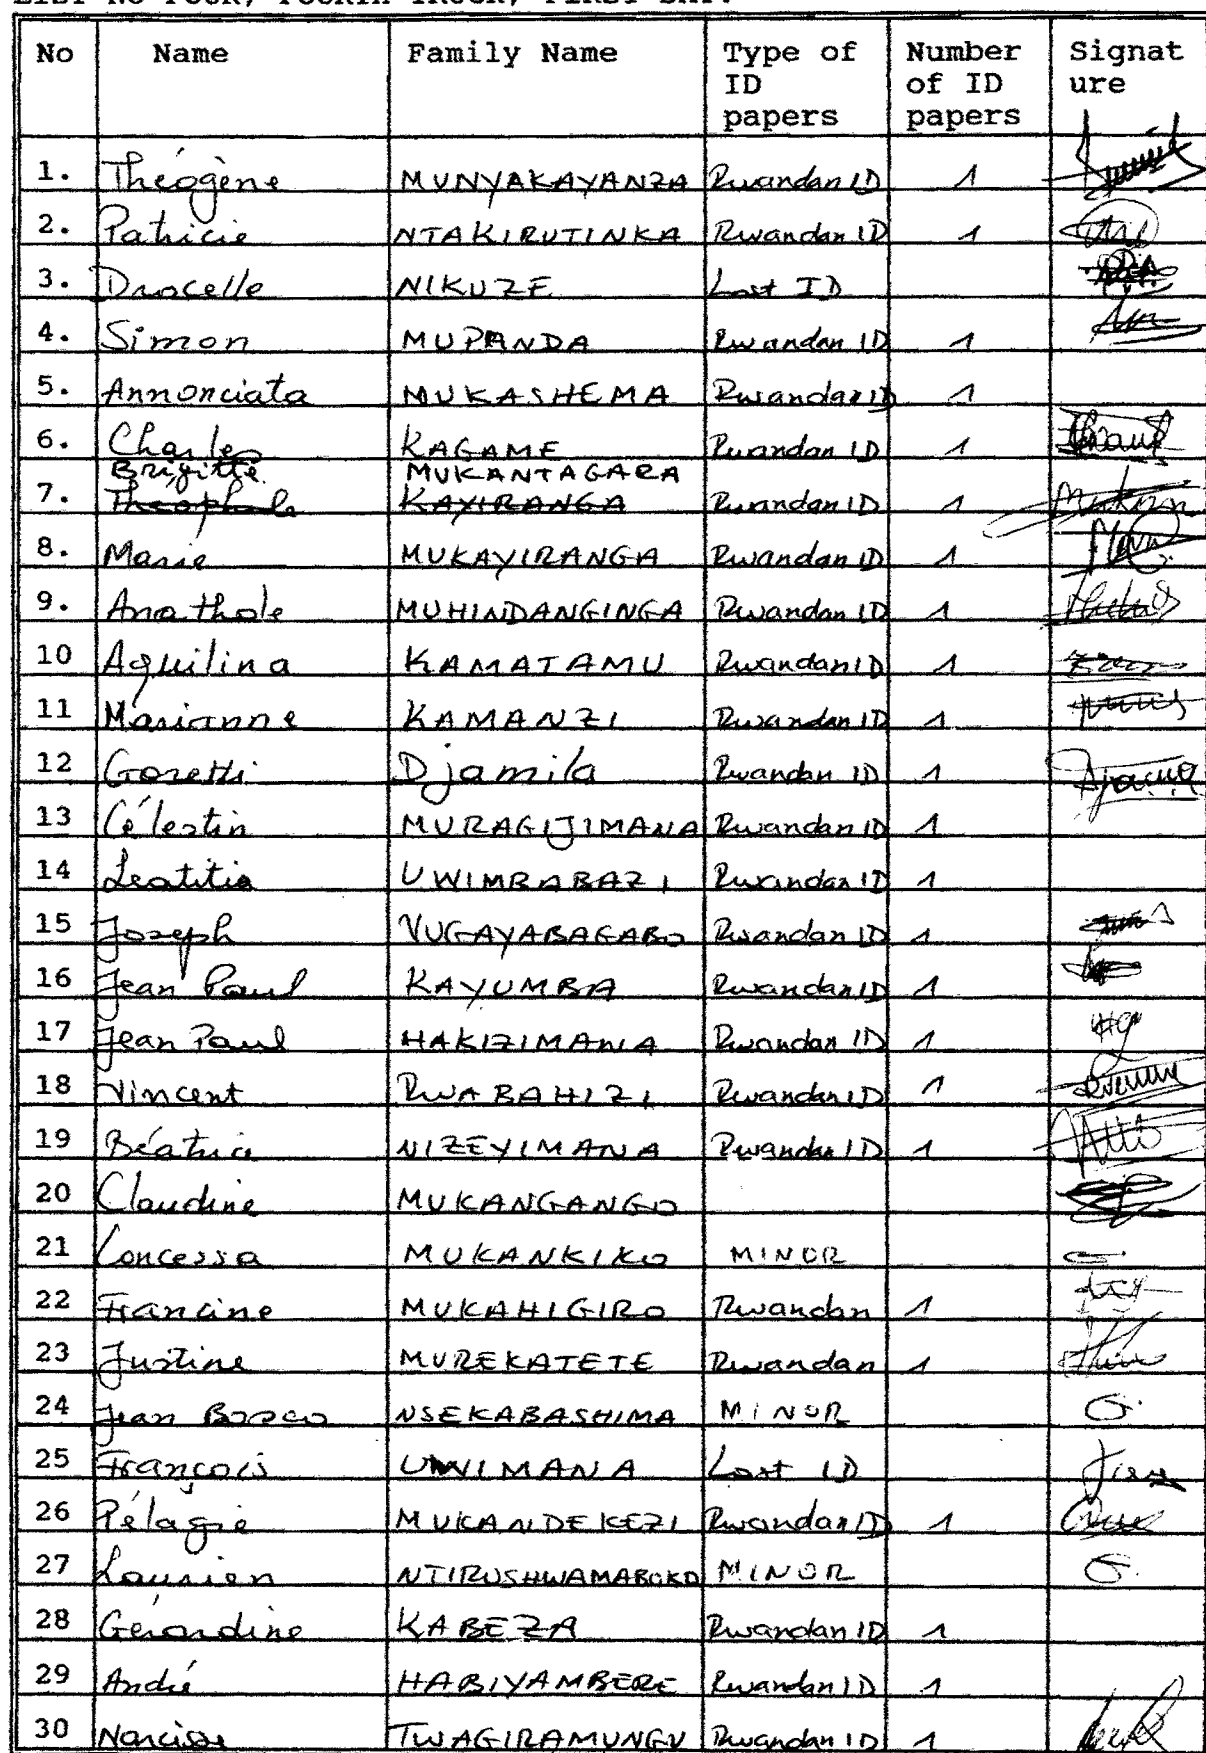 LIST NO FOUR, FOURTH TRUCK, FIRST DAY.
No Name Family Name Type of ID papers Number of ID papers Signat ure
1. Théogène MUNYAKAYANZA Rwandan ID 1
2. Patricie NTAKIRUTINKA Rwandan ID 1
3. Drocelle NIKUZE Lost ID
4. Simon MUPANDA Rwandan ID 1
5. Annonciata MUKASHEMA Rwandan ID 1
6. Charles KAGAME Rwandan ID 1
Brigitte MUKANTAGARA
7. Theophile KAYIRANGA Rwandan ID 1
8. Marie MUKAYIRANGA Rwandan ID 1
9. Anathole MUHINDANGINGA Rwandan ID 1
10 Aquilina KAMATAMU Rwandan ID 1
11 Marianne KAMANZI Rwandan ID 1
12 Goretti Djamila Rwandan ID 1
13 Célestin MURAGIJIMANA Rwandan ID 1
14 Leatitia UWIMBABAZI Rwandan ID 1
15 Joseph VUGAYABAGABO Rwandan ID 1
16 Jean Paul KAYUMBA Rwandan ID 1
17 Jean Paul HAKIZIMANA Rwandan ID 1
18 Vincent RWABAHIZI Rwandan ID 1
19 Béatrice NIZEYIMANA Rwandan ID 1
20 Claudine MUKANGANGO
21 Concessa MUKANKIKO MINOR
22 Francine MUKAHIGIRO Rwandan 1
23 Justine MUREKATETE Rwandan 1
24 Jean Bosco NSEKABASHIMA MINOR
25 François UWIMANA Lost ID
26 Pélagie MUKANDEKEZI Rwandan ID 1
27 Laurien NTIRUSHWAMABOKO MINOR
28 Gérardine KABEZA Rwandan ID 1
29 André HABIYAMBERE Rwandan ID 1
30 Narcisse TWAGIRAMUNGU Rwandan ID 1